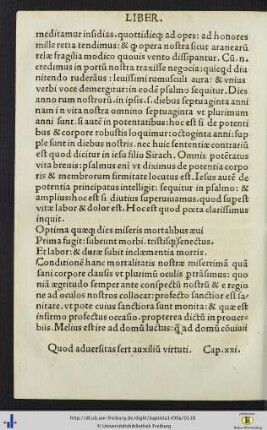 LIBER.
meditamur insidias. quottidieq; ad opes: ad honores
mille retia tendimus: & ꝙ opera nostra sicut aranearũ
telæ fragilia modico quouis vento dissipantur. Cũ. n.
credimus in portũ nostra traxisse negocia: quicqd diu
nitendo ruderãus: leuissimi rumusculi aura: & vnius
verbi voce demergitur: in eodẽ psalmo sequitur. Dies
anno rum nostrorũ. in ipsis. s. diebus septuaginta anni
nam in vita nostra omnino septuaginta vt plurimum
anni sunt. si autẽ in potentatibus: hoc est si de potenti
bus & corpore robustis loquimur: octoginta anni: sup
ple sunt in diebus nostris. nec huic sententiæ contrariũ
est quod dicitur in iesu filii Sirach. Omnis potẽtatus
vita breuis: psalmus eni vt diximus de potentia corpo
ris & membrorum firmitate locutus est. Iesus autẽ de
potentia principatus intelligit: sequitur in psalmo: &
amplius: hoc est si diutius superuiuamus. quod supest
vitæ labor & dolor est. Hoc est quod poeta clarissimus
inquit.
Optima quæq; dies miseris mortalibus æui
Prima fugit: subeunt morbi. tristisq; senectus.
Et labor: & duræ subit inclæmentia mortis.
Conditionẽ hanc mortalitatis nostræ miserrimã quã
sani corpore clausis vt plurimũ oculis ptrãsimus: quo
niã ægritudo semper ante conspectũ nostrũ & e regio
ne ad oculos nostros collocat: profecto sanctior est sa
nitate. vt pote cuius sanctiora sunt monita: & quæ est
infirmo profectus occasio. propterea dictũ in prouer-
biis. Melius est ire ad domũ luctus: q̃ ad domũ cõuiuii
Quod aduersitas fert auxiliũ virtuti. Cap. xxi.
http://dl.ub.uni-freiburg.de/diglit/
© Universitätsbibliothek Freiburg